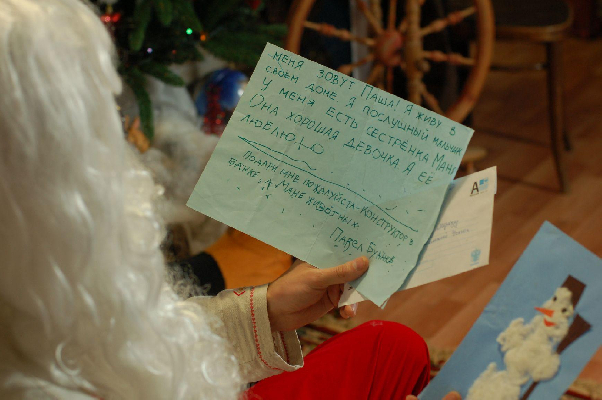 МЕНЯ ЗОВУТ ПАША! Я ЖИВУ В
СВОЕМ ДОМЕ Я ПОСЛУШНЫЙ МАЛЬЧИК
У МЕНЯ ЕСТЬ СЕСТРЁНКА МАНЯ
ОНА ХОРОШАЯ ДЕВОЧКА Я ЕЕ
ЛЮБЛЮ
ПОДАРИ МНЕ ПОЖАЛУЙСТА - КОНСТРУКТОР В
БАНКЕ, А МАНЕ ЖИВОТНЫХ
ПАВЕЛ
А